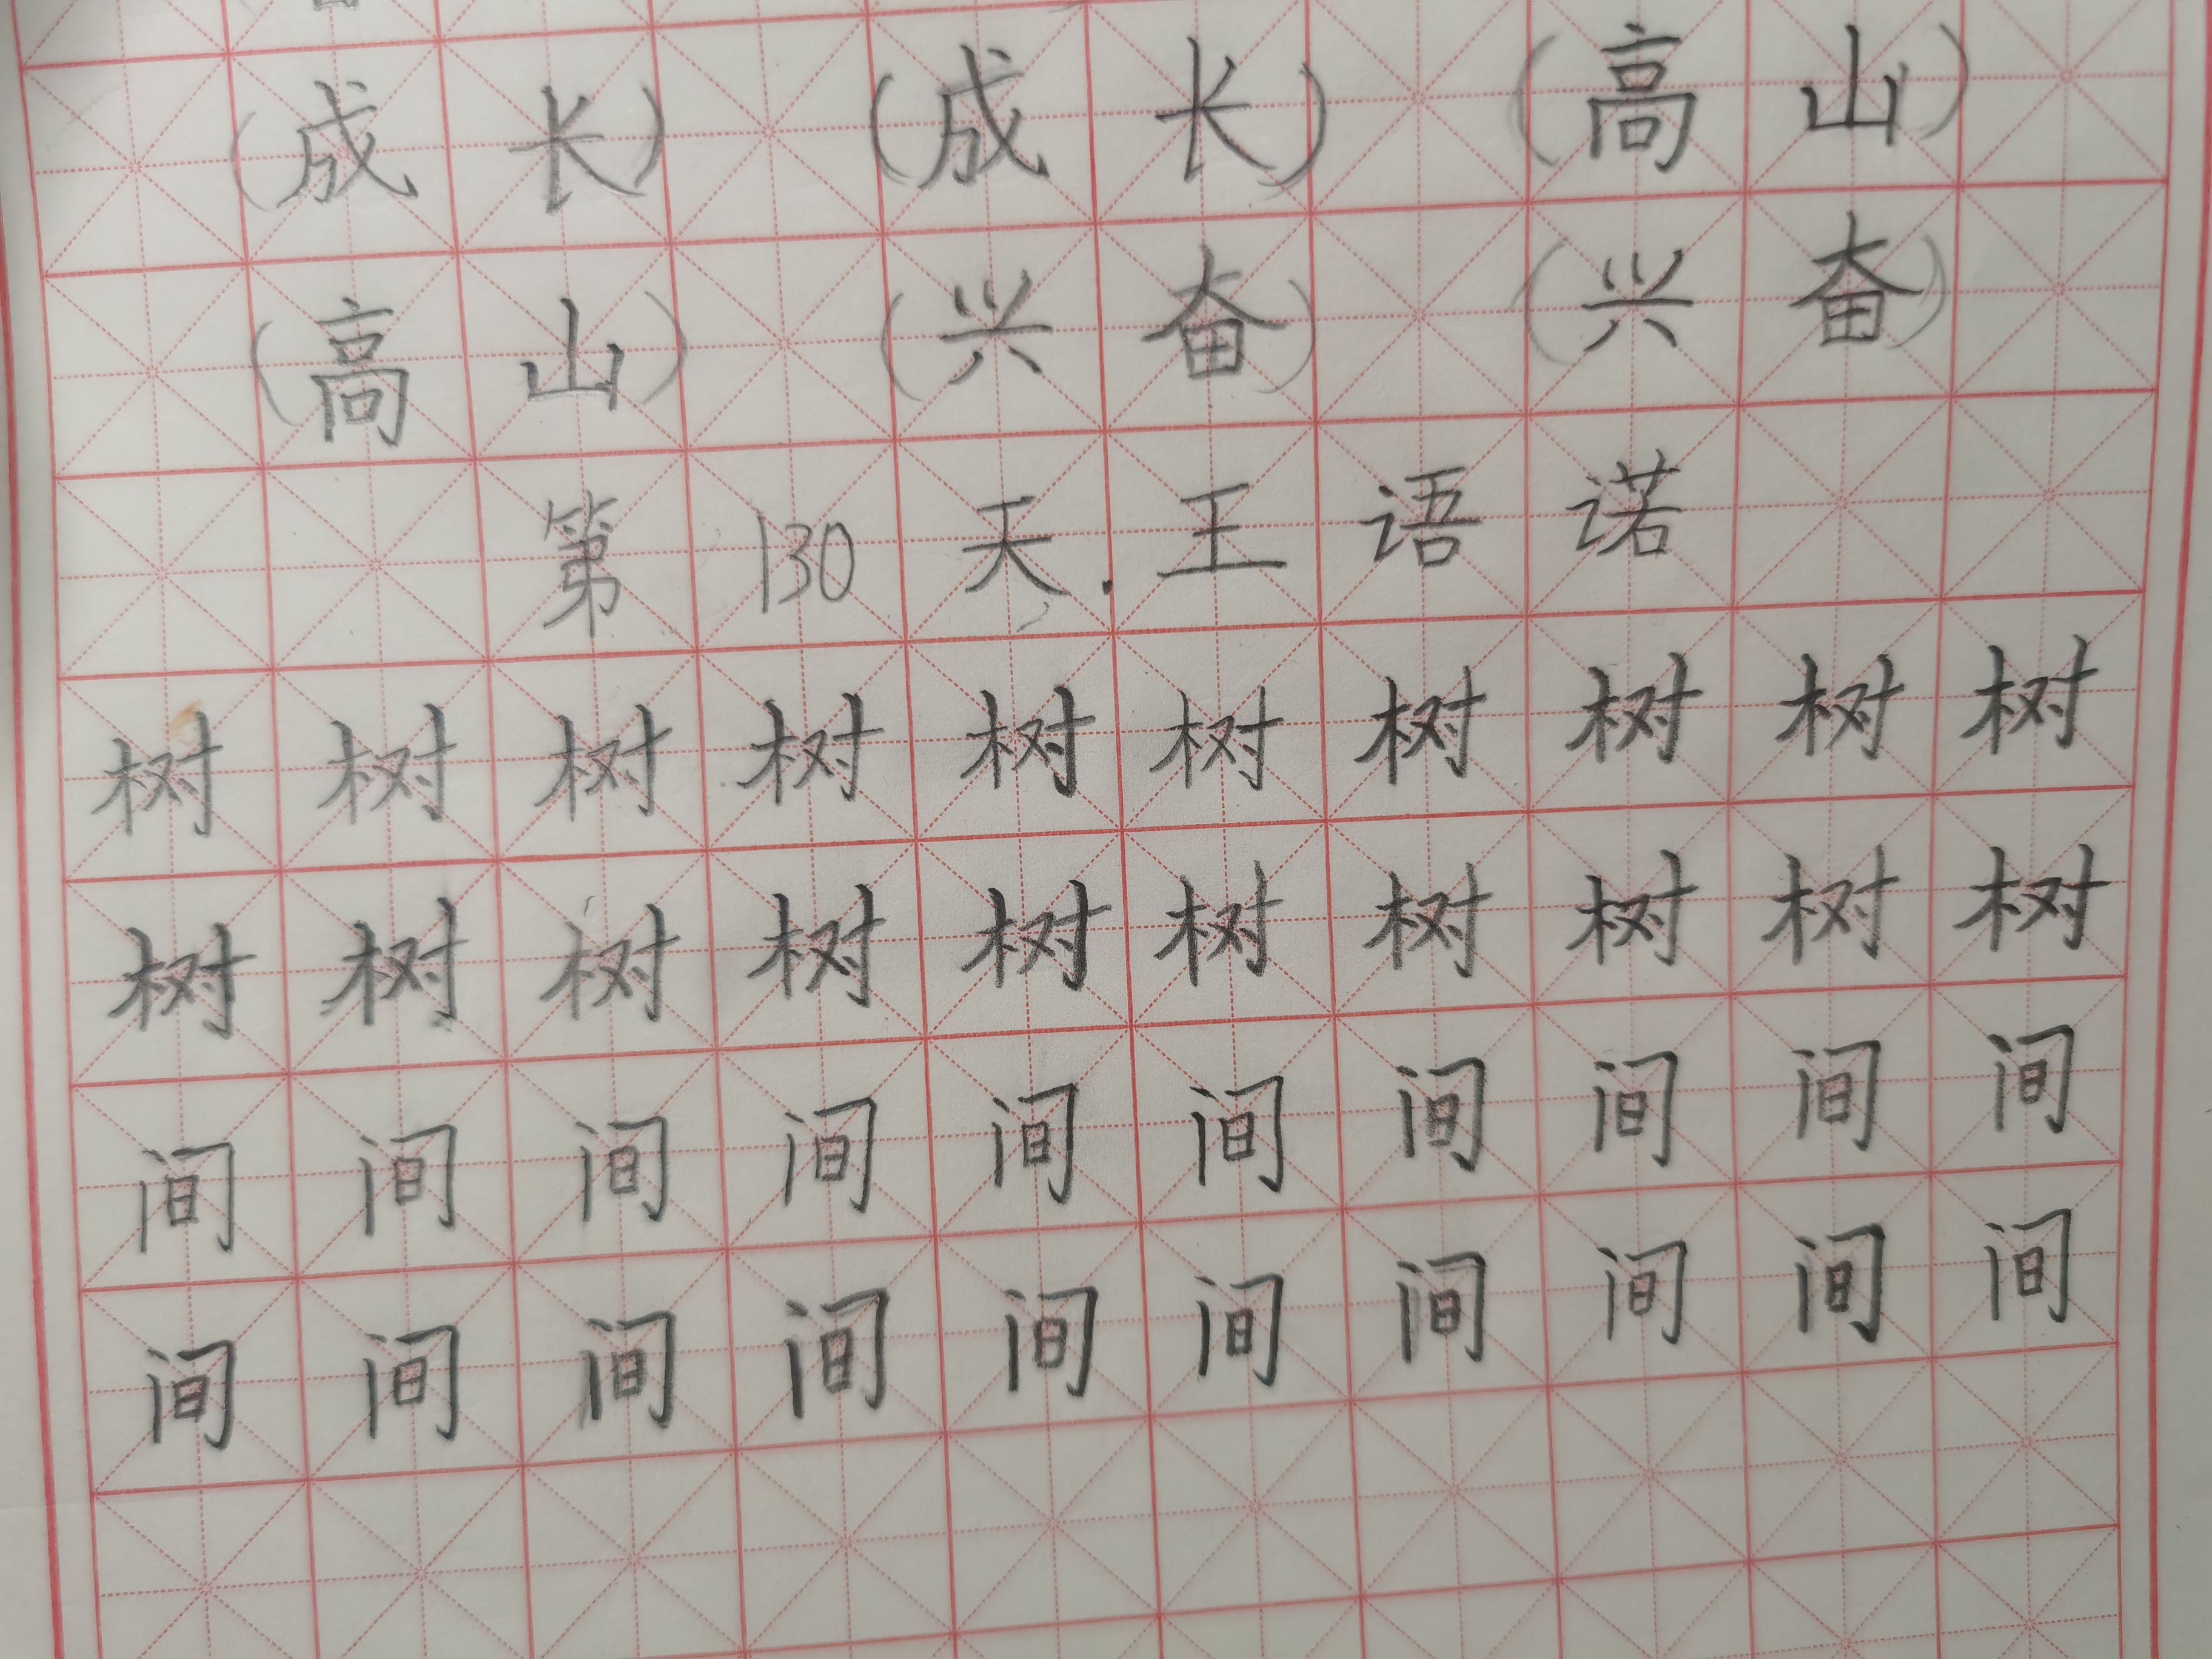 (成长) (成长) (高山)
(高山) (兴奋) (兴奋)
第130天.王语诺
树树树树树树树树树树
树树树树树树树树树树
间间间间间间间间间间
间间间间间间间间间间